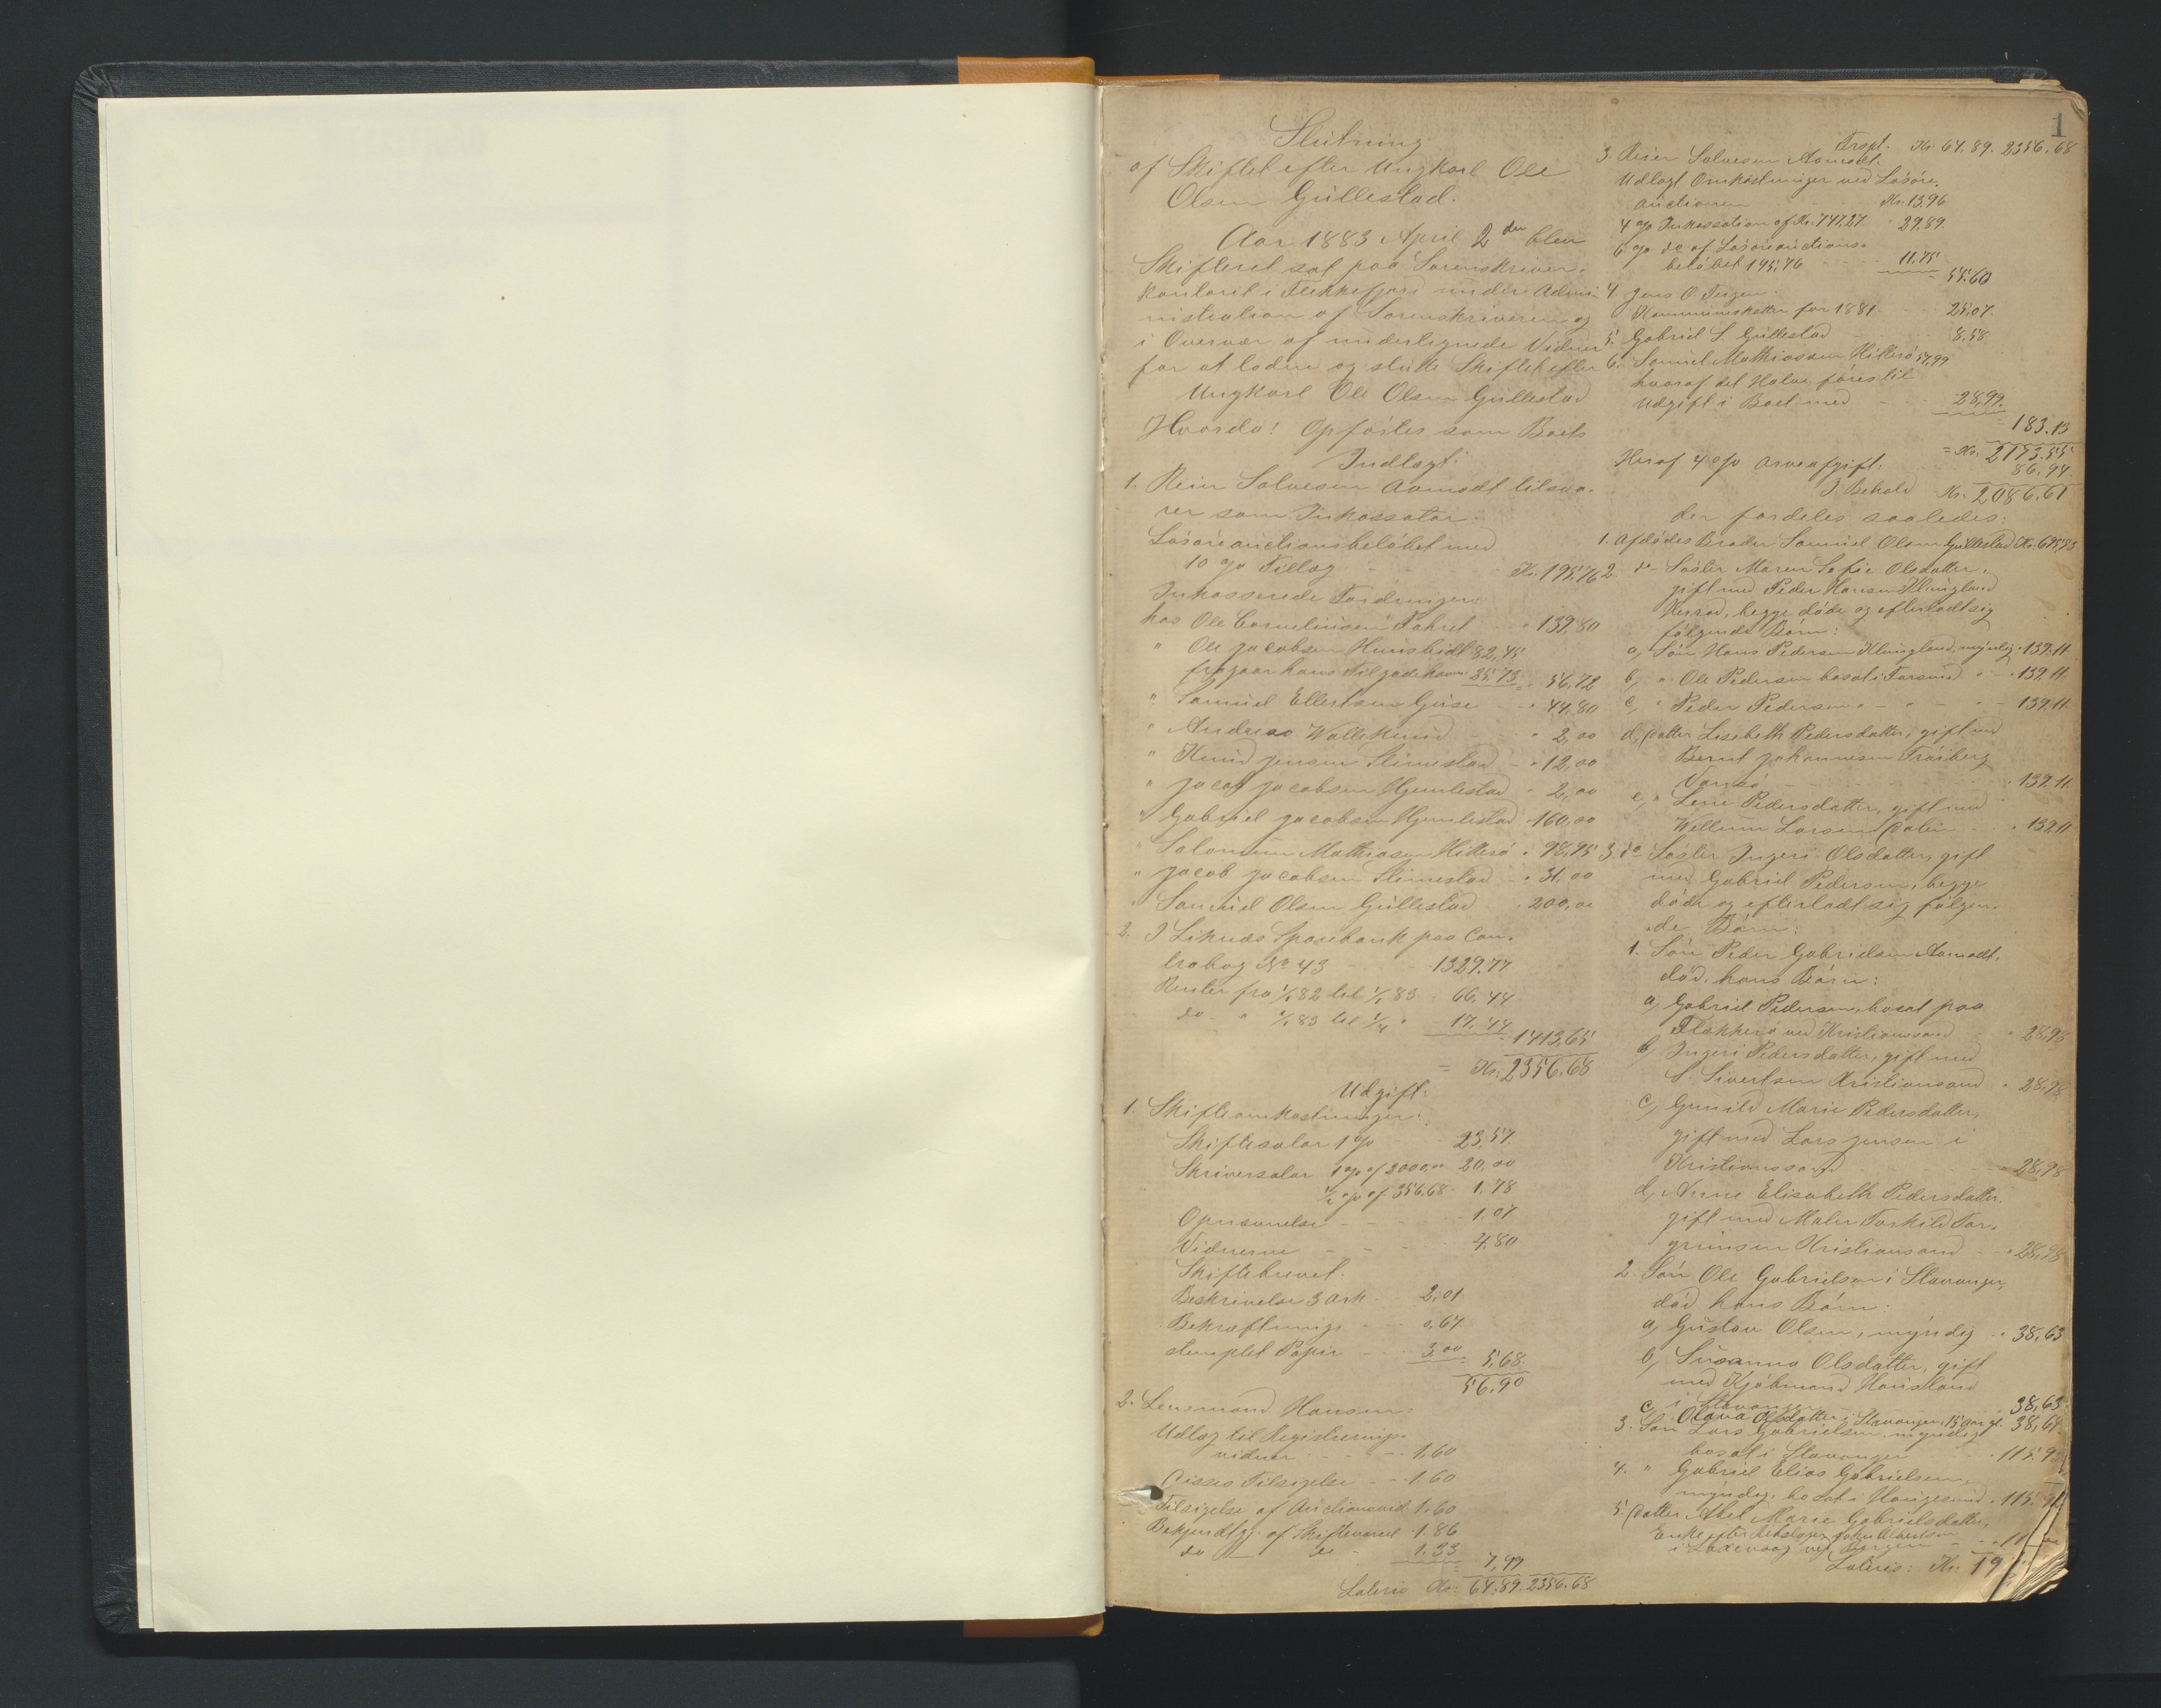 1
Slutning
af Skiftet efter Ungkarl Ole
Olsen Gullestad.
Aar 1883 April 2den blev
Skifteret sat paa Sorenskriver-
kontoret i Flekkefjord under Admi-
nistration af Sorenskriveren og
i Overvær af undertegnede Vidner
for at lodne og slutte Skiftet efter
Ungkarl Ole Olsen Gullestad
Hvorda! Opførtes som Boets
Indtægt:
1. Reier Salvesen Aamodt tilsva-
rer som Inkassator:
Løsøreauctionsbeløbet med
10 % Tillæg - - - Kr. 195,76
Inkasserede Fordringer:
hos Ole Corneliusen - - " 139,80
" Ole Jacobsen 82,45
fragaar hans Tilgodehavn. 25,73 = " 56,72
" Samuel Ellertsen - - " 44,80
" Andreas - " 2,00
" Knud Jensen Slimestad - " 12,00
" Jacob Jacobsen Hjemlestad " 2,00
" Gabriel Jacobsen Hjemlestad " 160,00
" Salomon Mathiasen Hitterø " 98,95
" Jacob Jacobsen Slimestad - " 31,00
" Samuel Olsen Gullestad " 200,00
2. I Liknæs Sparebank paa Con-
trabog No 43 - - 1329.77
Renter fra 1/1 82 til 1/1 83 " 66,44
do " 1/1 83 til 1/4 " 17,44
1413,65
= Kr. 2356.68
Udgift:
1. Skifteomkostninger:
Skiftesalær 1 % - - 23,57.
Skriversalær 1 % af 2000,00 20,00
1/2 % af 356,68 1,78
Opnævnelse - - - 1.07
Vidnerne - - - 4,80
Skiftebrevet:
Beskrivelse 3 Ark - 2,01
Bekræftning - - 0,67
stemplet Papir - 3,00 5,68
56,90
2. Lensmand Hansen:
Udlæg til Registrerings-
vidner - - 1,60
Tilsigelse - - 1.60
Tilsigelse af Auctionsvid. 1.60
Bekjendtgj. af Skiftevarsel 1.86
do - do - 1.33 7,99
Lateris Kr. 64.89. 2356.68
Trspt. Kr. 64.89. 2356,68
3. Reier Salvesen Aamodt.
Udlagt Omkostninger ved Løsøre-
auctionen Kr. 13,96
4 % Inkassation af Kr. 747,27 " 29,89
6 % do af Løsøreauctions-
beløbet 195,76 - - 11.75
55.60
4. Jens O.
Kommuneskatter for 1881 - 25,07.
5. Gabriel S. Gullestad - 8.58
6. Samuel Mathiassen Hitterø 57,99
hvoraf det Halve føres til
Udgift i Boet med - - 28,99
183.13
= Kr. 2173.55
Heraf 4 % Arveafgift: 86,94.
I Behold Kr. 2086,61
der fordeles saaledes:
1. Afdødes Broder Samuel Olsen Gullestad Kr. 695,53
2. do Søster Maren Sofie Olsdatter,
gift med Peder Hansen Klungland
Herad, begge døde og efterladt sig
følgende Børn:
a, Søn Hans Pedersen Klungland, myndig " 139.11
b, " Ole Pedersen bosat i Farsund " - " 139.11
c, " Peder Pedersen " - " " - 139.11
d, Datter Lisebeth Pedersdatter, gift med
Bernt Johannesen
- - - " 139.11
e, " Lene Pedersdatter, gift med
Larsen - - " 139,11
3. do Søster Ingeri Olsdatter, gift
med Gabriel Pedersen, begge
døde og efterladt sig følgen-
de Børn:
1. Søn Peder Gabrielsen Aamodt,
død, hans Børn:
a, Gabriel Pedersen, bosat paa
Flekkerø ved Kristianssand " 28,98
b, Ingeri Pedersdatter, gift med
S. Sivertsen Kristiansand " 28,98
c, Gunild Marie Pedersdatter,
gift med Lars Jensen i
Kristianssand - - 28,98
d, Anne Elisabeth Pedersdatter,
gift med Maler Torkild Tor-
grimsen Kristiansand - " 28,98
2. Søn Ole Gabrielsen i Stavanger,
død, hans Børn:
a, Gustav Olsen, myndig - " 38,63
b, Susanna Olsdatter, gift
med Kjøbmand
i Stavanger - - " 38,63
c, Olava Olsdatter i Stavanger, 15 Aar gl. 38,64.
3. Søn Lars Gabrielsen, myndig
bosat i Stavanger - - " 115.9
4. " Gabriel Elias Gabrielsen,
myndig, bosat i Haugesund " 115,9
5. Datter Abel Marie Gabrielsdatter,
Enke efter
i Laxevaag ved Bergen - - " 11
Lateris: Kr. 19